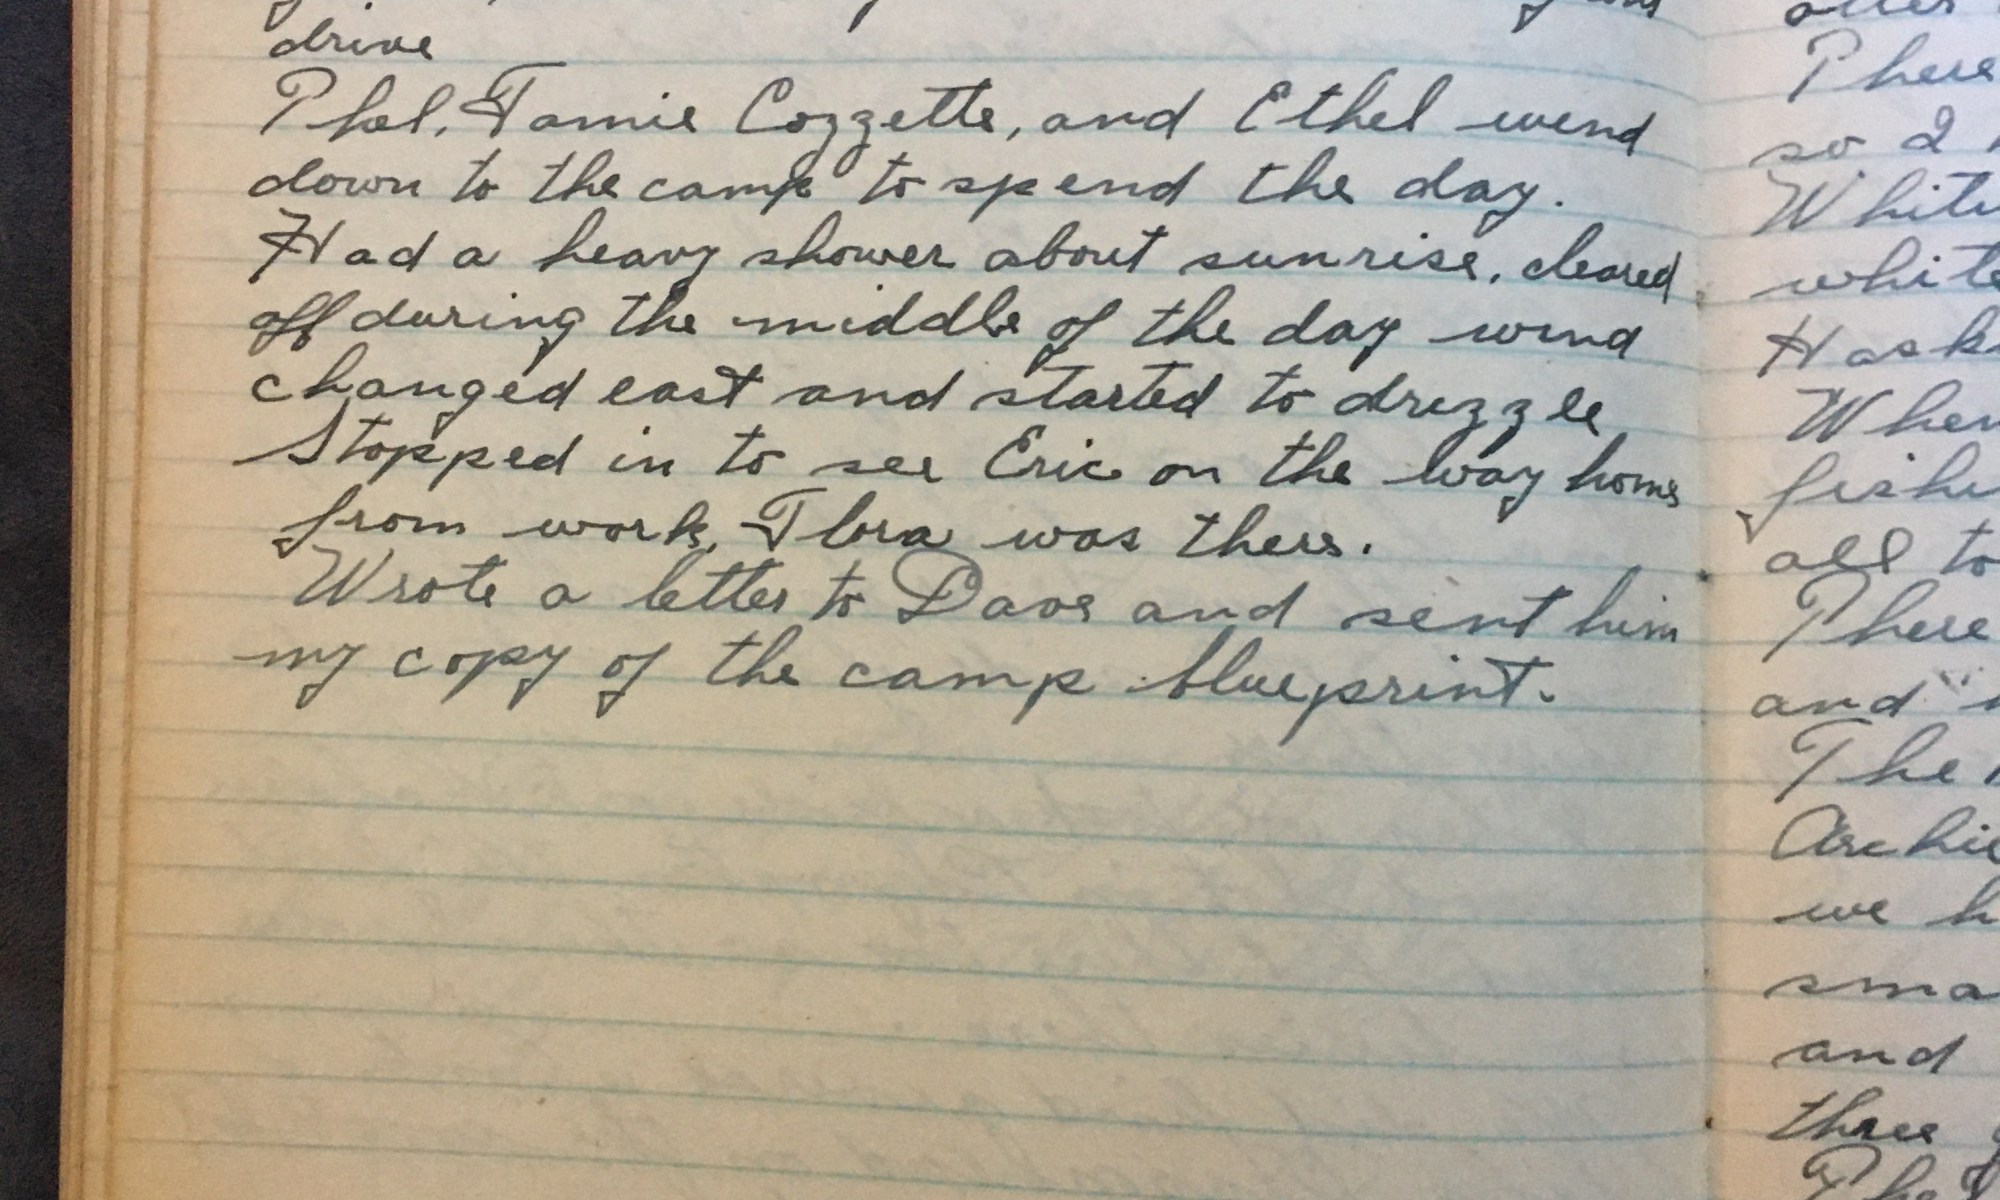 drive
Phel, Famie Cozzette, and Ethel wend
down to the camp to spend the day.
Had a heavy shower about sunrise, cleared
off during the middle of the day wind
changed east and started to drizzle
Stopped in to see Eric on the way home
from work, Flora was there.
Wrote a letter to Dave and sent him
my copy of the camp blueprint.
There
so I
White
white
Hask
When
fishi
all to
There
and
The
Archie
we h
sma
and
three